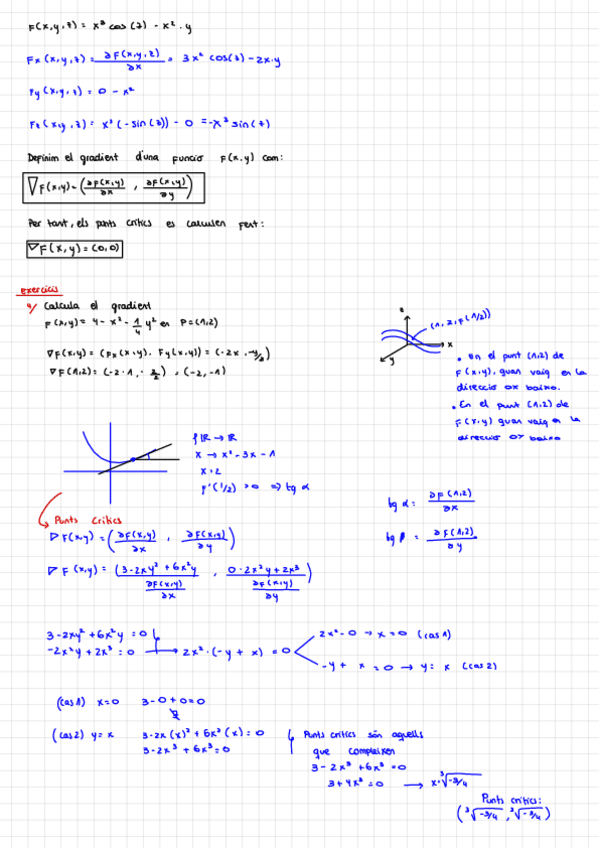 F(x,y,z) = x³ cos(z) - x² · y
Fx(x,y,z) = ∂F(x,y,z)/∂x = 3x² cos(z) - 2x·y
Fy(x,y,z) = 0 - x²
Fz(x,y,z) = x³(-sin(z)) - 0 = -x³ sin(z)
Definim el gradient d'una funció F(x,y) com:
∇F(x,y) = (∂F(x,y)/∂x , ∂F(x,y)/∂y)
Per tant, els punts crítics es calculen fent:
∇F(x,y) = (0,0)
exercicis
4/ Calcula el gradient
F(x,y) = 4 - x² - 1/4 y² en P=(1,2)
∇F(x,y) = (Fx(x,y), Fy(x,y)) = (-2x, -y/2)
∇F(1,2) = (-2·1, -2/2) = (-2,-1)
z
(1,2,F(1/2))
x
y
• En el punt (1,2) de
F(x,y), quan vaig en la
direcció OX baixo.
• En el punt (1,2) de
F(x,y) quan vaig en la
direcció OY baixo
f: ℝ → ℝ
x → x² - 3x - 1
x = 2
f'(1/2) > 0 => tg α
tg α = ∂F(1,2)/∂x
tg β = ∂F(1,2)/∂y
Punts crítics
∇F(x,y) = (∂F(x,y)/∂x , ∂F(x,y)/∂y)
∇F(x,y) = (3-2xy²+6x²y , 0-2x²y+2x³)
∂F(x,y)/∂x ∂F(x,y)/∂y
3-2xy²+6x²y = 0
-2x²y+2x³ = 0 → 2x²·(-y+x) = 0
2x² = 0 → x = 0 (cas 1)
-y + x = 0 → y = x (cas 2)
(cas 1) x=0 3-0+0=0
(cas 2) y=x 3-2x(x)²+6x²(x) = 0
3-2x³+6x³ = 0
Punts crítics són aquells
que compleixen
3-2x³+6x³ = 0
3+4x³ = 0 → x = ³√-3/4
Punts crítics:
(³√-3/4, ³√-3/4)